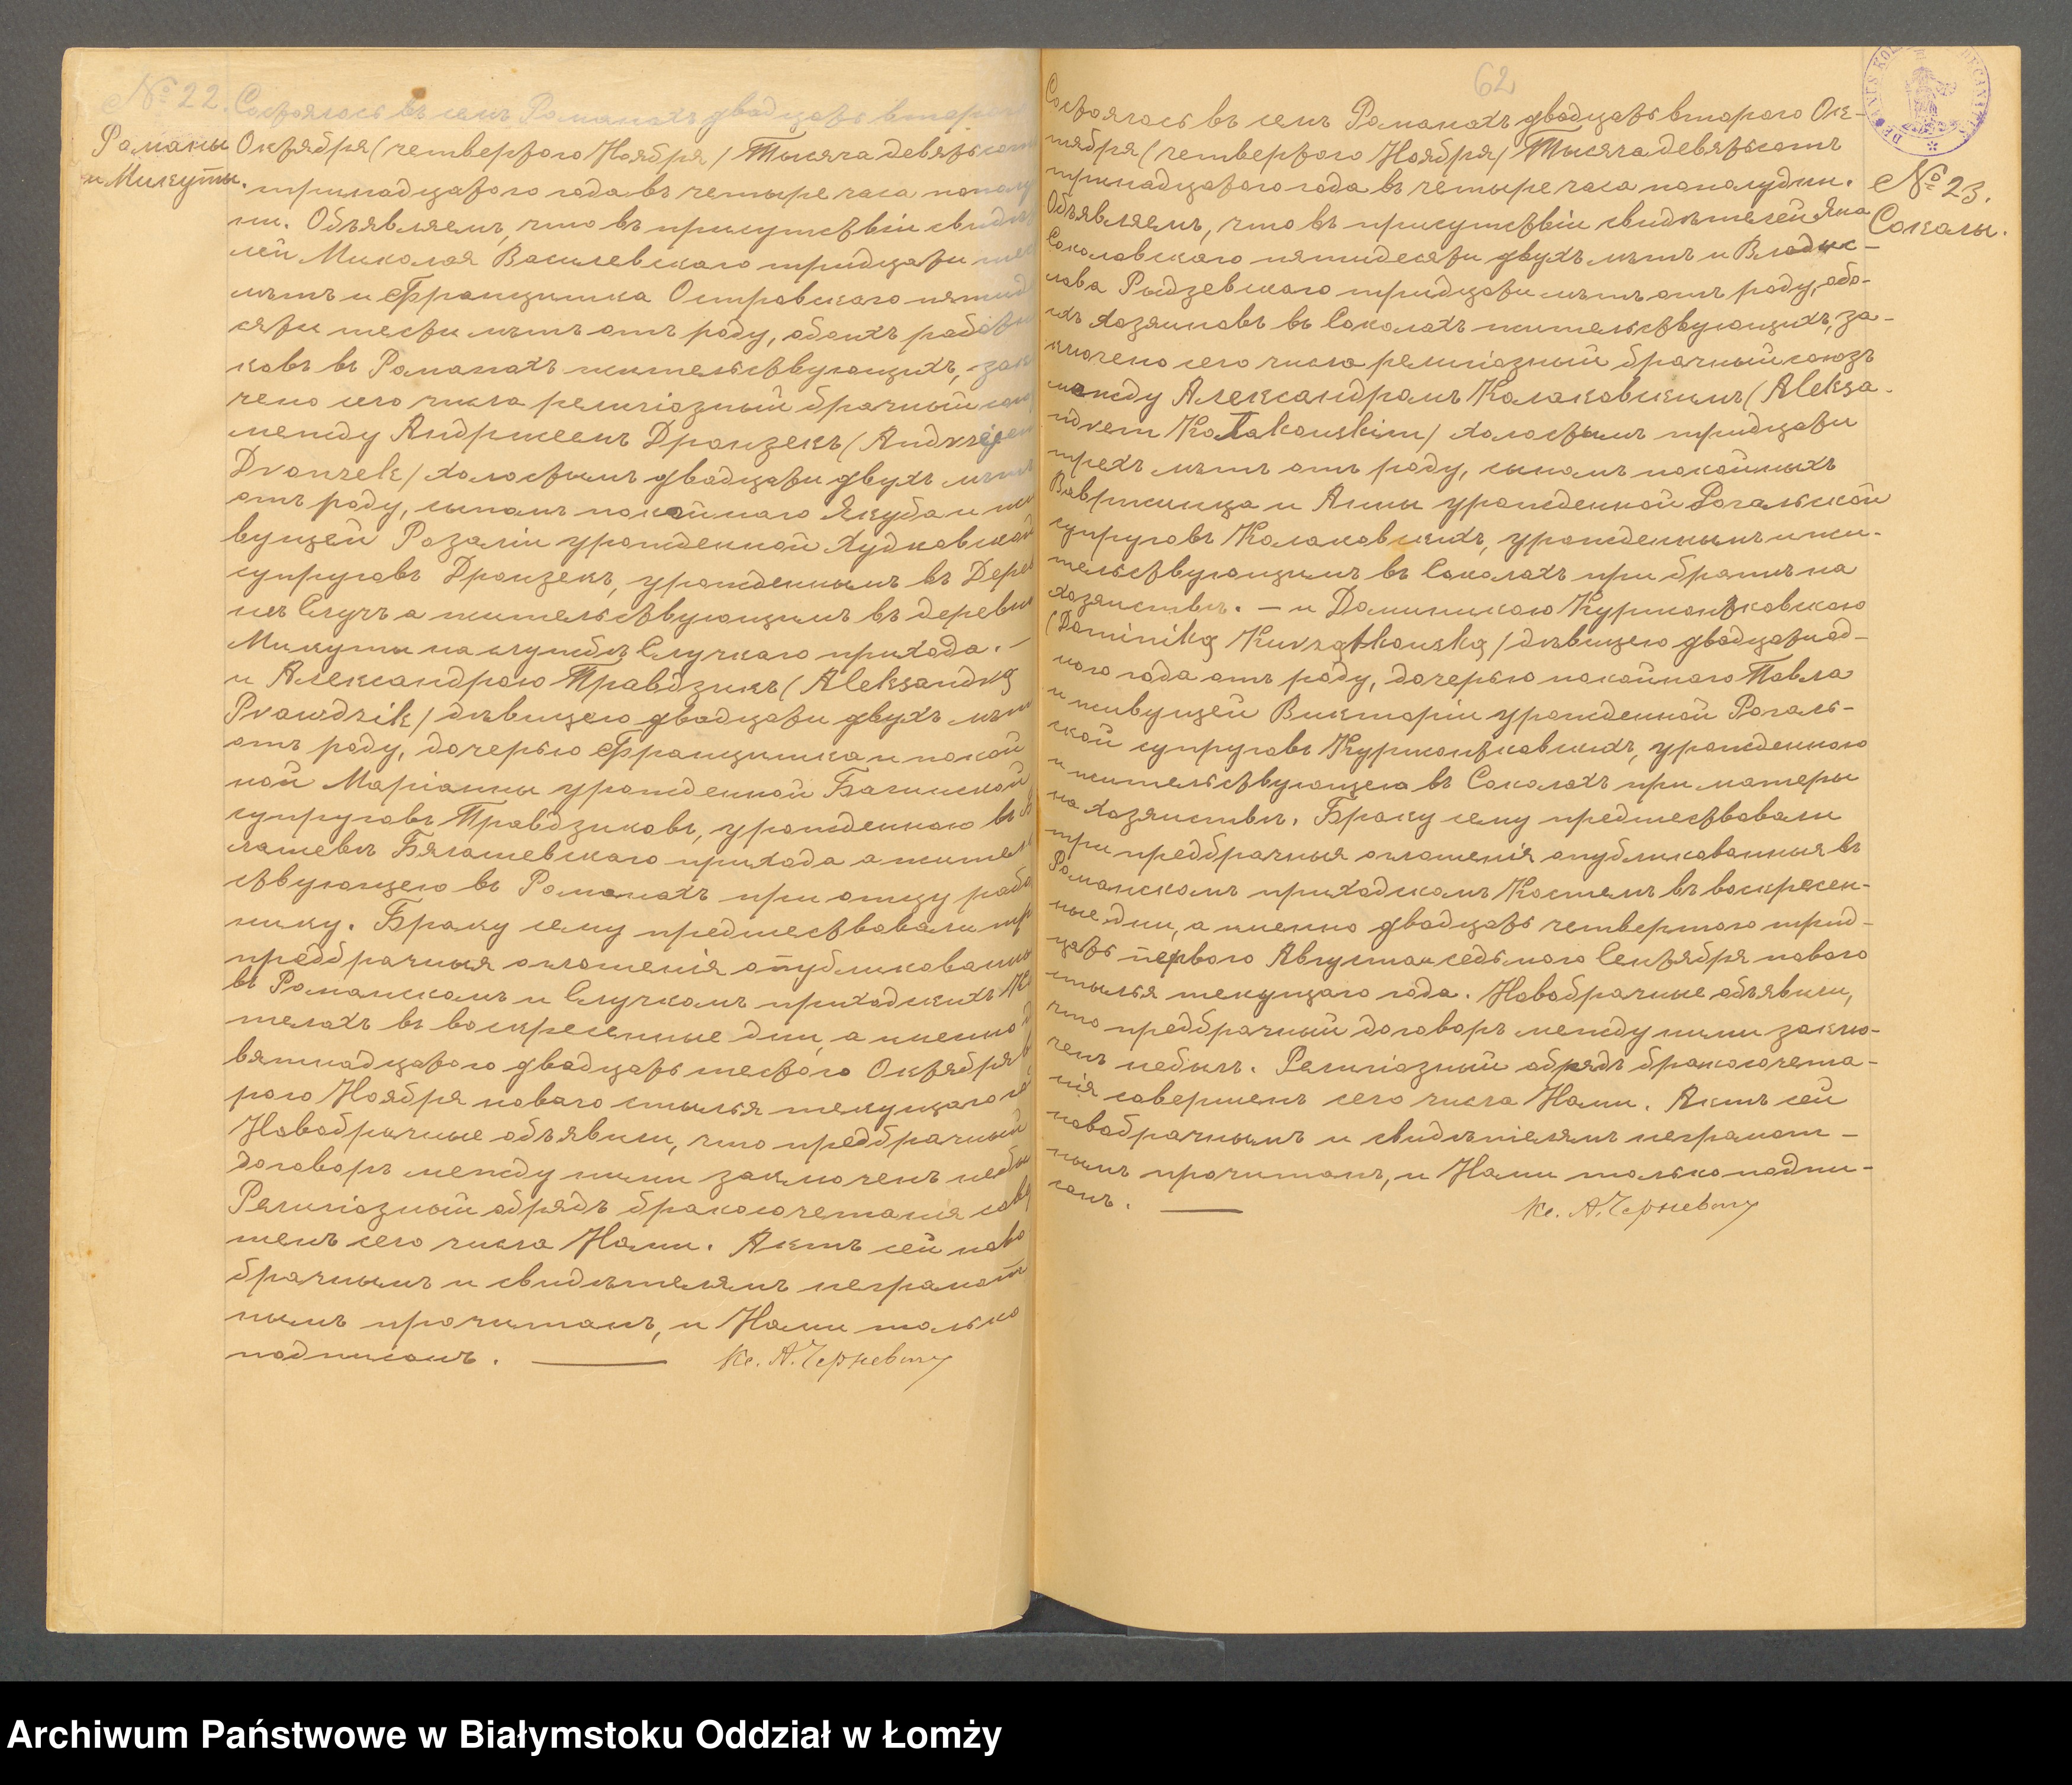 № 22.
Романы
и Микуты.
Состоялось въ селѣ Романахъ двадцать второго
Октября (четвертого Ноября) Тысяча девятьсотъ
тринадцатого года въ четыре часа пополуд
ни. Объявляемъ, что въ присутствіи свидѣт
лей Миколая Василевскаго тридцати шес
лѣтъ и Францишка Островскаго пятиде
сяти шести лѣтъ отъ роду, обоихъ работни
ковъ въ Романахъ жительствующихъ, заклю
чено сего числа религіозный брачный союз
между Андржеемъ Дронзекъ (Andrzejem
Dronzek) холостымъ двадцати двухъ лѣтъ
отъ роду, сыномъ покойнаго Якуба и жи
вущей Розаліи урожденной Худковской
супруговъ Дронзекъ, урожденнымъ въ Дерев
нѣ Случъ а жительствующимъ въ деревнѣ
Микуты на службѣ Случкаго прихода. —
и Александрою Правдзикъ (Aleksandrą
Prawdzik) дѣвицею двадцати двухъ лѣтъ
отъ роду, дочерью Францишка и покой
ной Маріанны урожденной Багинской
супруговъ Правдзиковъ, урожденною въ Бя
лашевѣ Бялашевскаго прихода а жител
ствующею въ Романахъ при отцу рабо
нику. Браку сему предшествовали три
предбрачныя оглошенія опубликованны
въ Романскомъ и Случкомъ приходскихъ Ко
телахъ въ воскресенные дни, а именно д
вятнадцатого двадцать шестого Октября вт
рого Ноября новаго стиля текущаго го
Новобрачные объявили, что предбрачный
договоръ между ними заключенъ небы
Религіозный обрядъ бракосочетанія совер
шенъ сего числа Нами. Актъ сей ново
брачнымъ и свидѣтелямъ неграмот
нымъ прочитанъ, и Нами только
подписанъ. — Кс. А. Черневичъ
62
№ 23.
Соколы.
Состоялось въ селѣ Романахъ двадцать второго Ок-
тября (четвертого Ноября) Тысяча девятьсотъ
тринадцатого года въ четыре часа пополудни.
Объявляемъ, что въ присутствіи свидѣтелей Яна
Соколовскаго пятидесяти двухъ лѣтъ и Владис-
лава Рыдзевскаго тридцати лѣтъ отъ роду, обо-
ихъ хозяиновъ въ Соколахъ жительствующихъ, за-
ключено сего числа религіозный брачный союзъ
между Александромъ Колаковскимъ (Aleksa-
ndrem Kołakowskim) холостымъ тридцати
трехъ лѣтъ отъ роду, сыномъ покойныхъ
Вавржинца и Анны урожденной Рогальской
супруговъ Колаковскихъ, урожденнымъ и жи-
тельствующимъ въ Соколахъ при братѣ на
хозяиствѣ. — и Доминикою Куржонтковскою
(Dominiką Kurzątkowską) дѣвицею двадцати од-
ного года отъ роду, дочерью покойнаго Павла
и живущей Викторіи урожденной Рогаль-
ской супруговъ Куржонтковскихъ, урожденною
и жительствующею въ Соколахъ при матеры
на хозяиствѣ. Браку сему предшествовали
три предбрачныя оглошенія опубликованныя въ
Романскомъ приходскомъ Костелѣ въ воскресен-
ные дни, а именно двадцать четвертого трид-
цать первого Августа и седьмого Сентября новаго
стиля текущаго года. Новобрачные объявили,
что предбрачный договоръ между ними заклю-
ченъ небылъ. Религіозный обрядъ бракосочета-
нія совершенъ сего числа Нами. Актъ сей
новобрачнымъ и свидѣтелямъ неграмот-
нымъ прочитанъ, и Нами только подпи-
санъ. — Кс. А. Черневичъ
Archiwum Państwowe w Białymstoku Oddział w Łomży